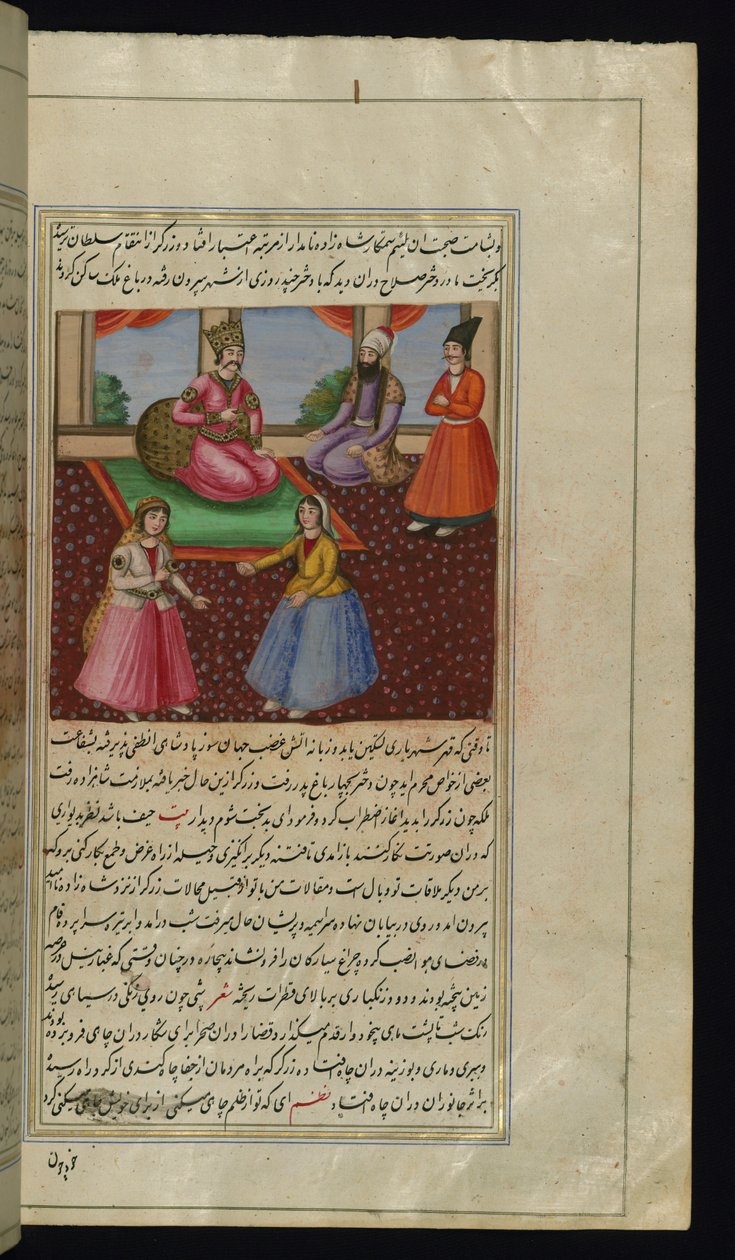 وبشامت صحبت ان لئیم ستمکار شاه زاده نامدار از مرتبه اعتبار افتاد و زرکر از انتقام سلطان ترسیده
بکریخت مادر دختر صلاح دران دید که با دختر چند روزی از شهر بیرون رفته در باغ ملک ساکن کردند
تا وقتی که قهر شهریاری تسکین یابد و زبانه اتش غضب جهان سوز پادشاهی انطفی پذیرفته بشفاعت
بعضی از خواص محرم اید چون دختر بچهار باغ پدر رفت و زرکر ازین حال خبر یافته بملازمت شاهزاده رفت
ملکه چون زرکر را بدید اغاز اضطراب کرد و فرمود ای بدبخت شوم دیدار بیت حیف باشد نظر بدیواری
که دران صورتت نکار کنند باز امدی تا فتنه دیکر برانکیزی و حیله از راه غرض و طمع بکار کنی برو که
بر من دیکر ملاقات تو وبال است و مقالات من با تو از قبیل محالات زرکر از نزد شاه زاده نا امید
بیرون امد و روی در بیابان نهاده سراسیمه و پریشان حال میرفت شب درامد و ابر تیره سراپرده ظلام
در فضای هوا نصب کرده چراغ سیارکان را فرو نشاند بیچاره در چنان وقتی که غبار نیل در عرصه
زمین بیخته بودند و دوده زنکباری بر بالای قطرات ریخته شعر شبی چون روی زنکی در سیاهی رسیده
رنک شب تا پشت ماهی بیخود وار قدم میکذارد قضا را دران صحرا برای شکار ددان چاهی فرو برده بودند
و ببری و ماری و بوزینه دران چاه افتاده زرکر که براه مردمان از جفا چاه کندی از کرد راه رسیده
بر اثر جانوران دران چاه افتاد نظم ای که تو از ظلم چاهی میکنی از برای خویش چاهی میکنی کرد
خود چون